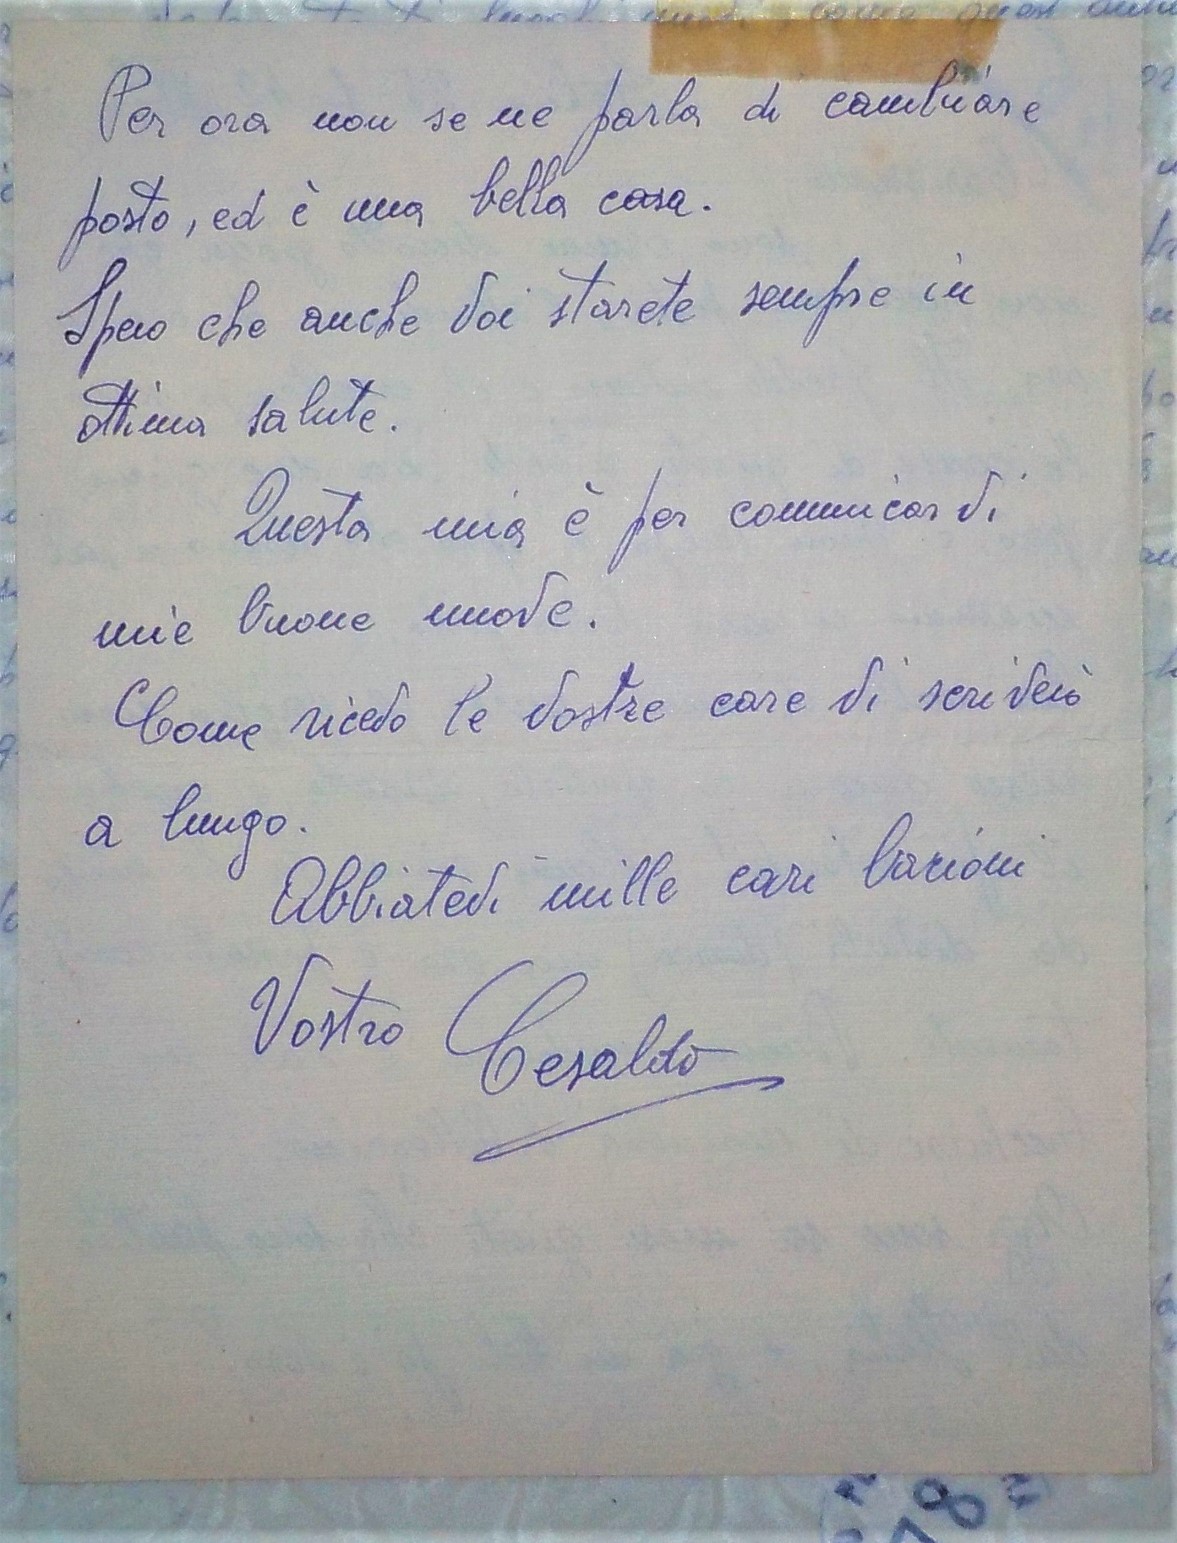 Per ora non se ne parla di cambiare
posto, ed è una bella casa.
Spero che anche Voi starete sempre in
ottima salute.
Questa mia è per comunicarVi
mie buone nuove.
Come ricevo le Vostre care Vi scriverò
a lungo.
AbbiateVi mille cari bacioni
Vostro Cesaldo